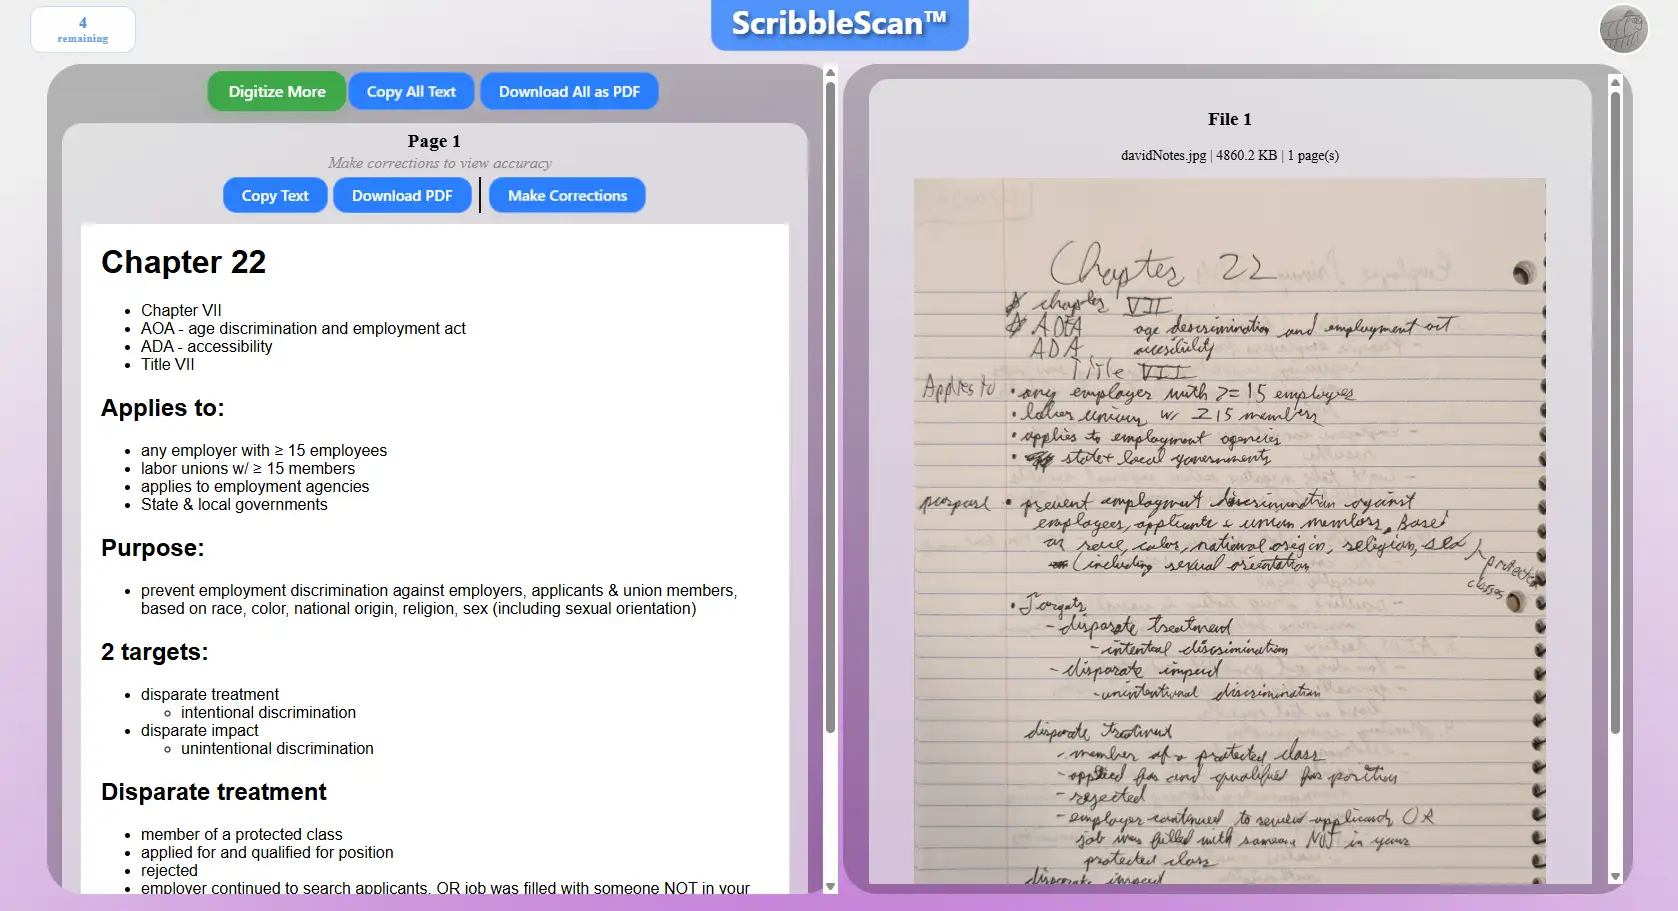 4
remaining
ScribbleScan™
Digitize More
Copy All Text
Download All as PDF
Page 1
Make corrections to view accuracy
Copy Text
Download PDF
Make Corrections
Chapter 22
• Chapter VII
• AOA - age discrimination and employment act
• ADA - accessibility
• Title VII
Applies to:
• any employer with ≥ 15 employees
• labor unions w/ ≥ 15 members
• applies to employment agencies
• State & local governments
Purpose:
• prevent employment discrimination against employers, applicants & union members,
based on race, color, national origin, religion, sex (including sexual orientation)
2 targets:
• disparate treatment
◦ intentional discrimination
• disparate impact
◦ unintentional discrimination
Disparate treatment
• member of a protected class
• applied for and qualified for position
• rejected
• employer continued to search applicants, OR job was filled with someone NOT in your
File 1
davidNotes.jpg | 4860.2 KB | 1 page(s)
Chapter 22
chapter VII
age descrimination and employment act
ADA accesibility
Title VII
Applies to • any employer with >= 15 employees
• labor unions w/ ≥ 15 members
• applies to employment agencies
• state + local governments
purpose • prevent employment discrimination against
employees, applicants + union members. Based
on race, color, national origin, religion, sex
(including sexual orientation
protected
classes
• Targets
- disparate treatment
- intentional discrimination
- disparate impact
- unintentional discrimination
disparate treatment
- member of a protected class
- applied for and qualified for position
- rejected
- employer continued to review applicants OR
job was filled with someone NOT in your
protected class
disparate impact